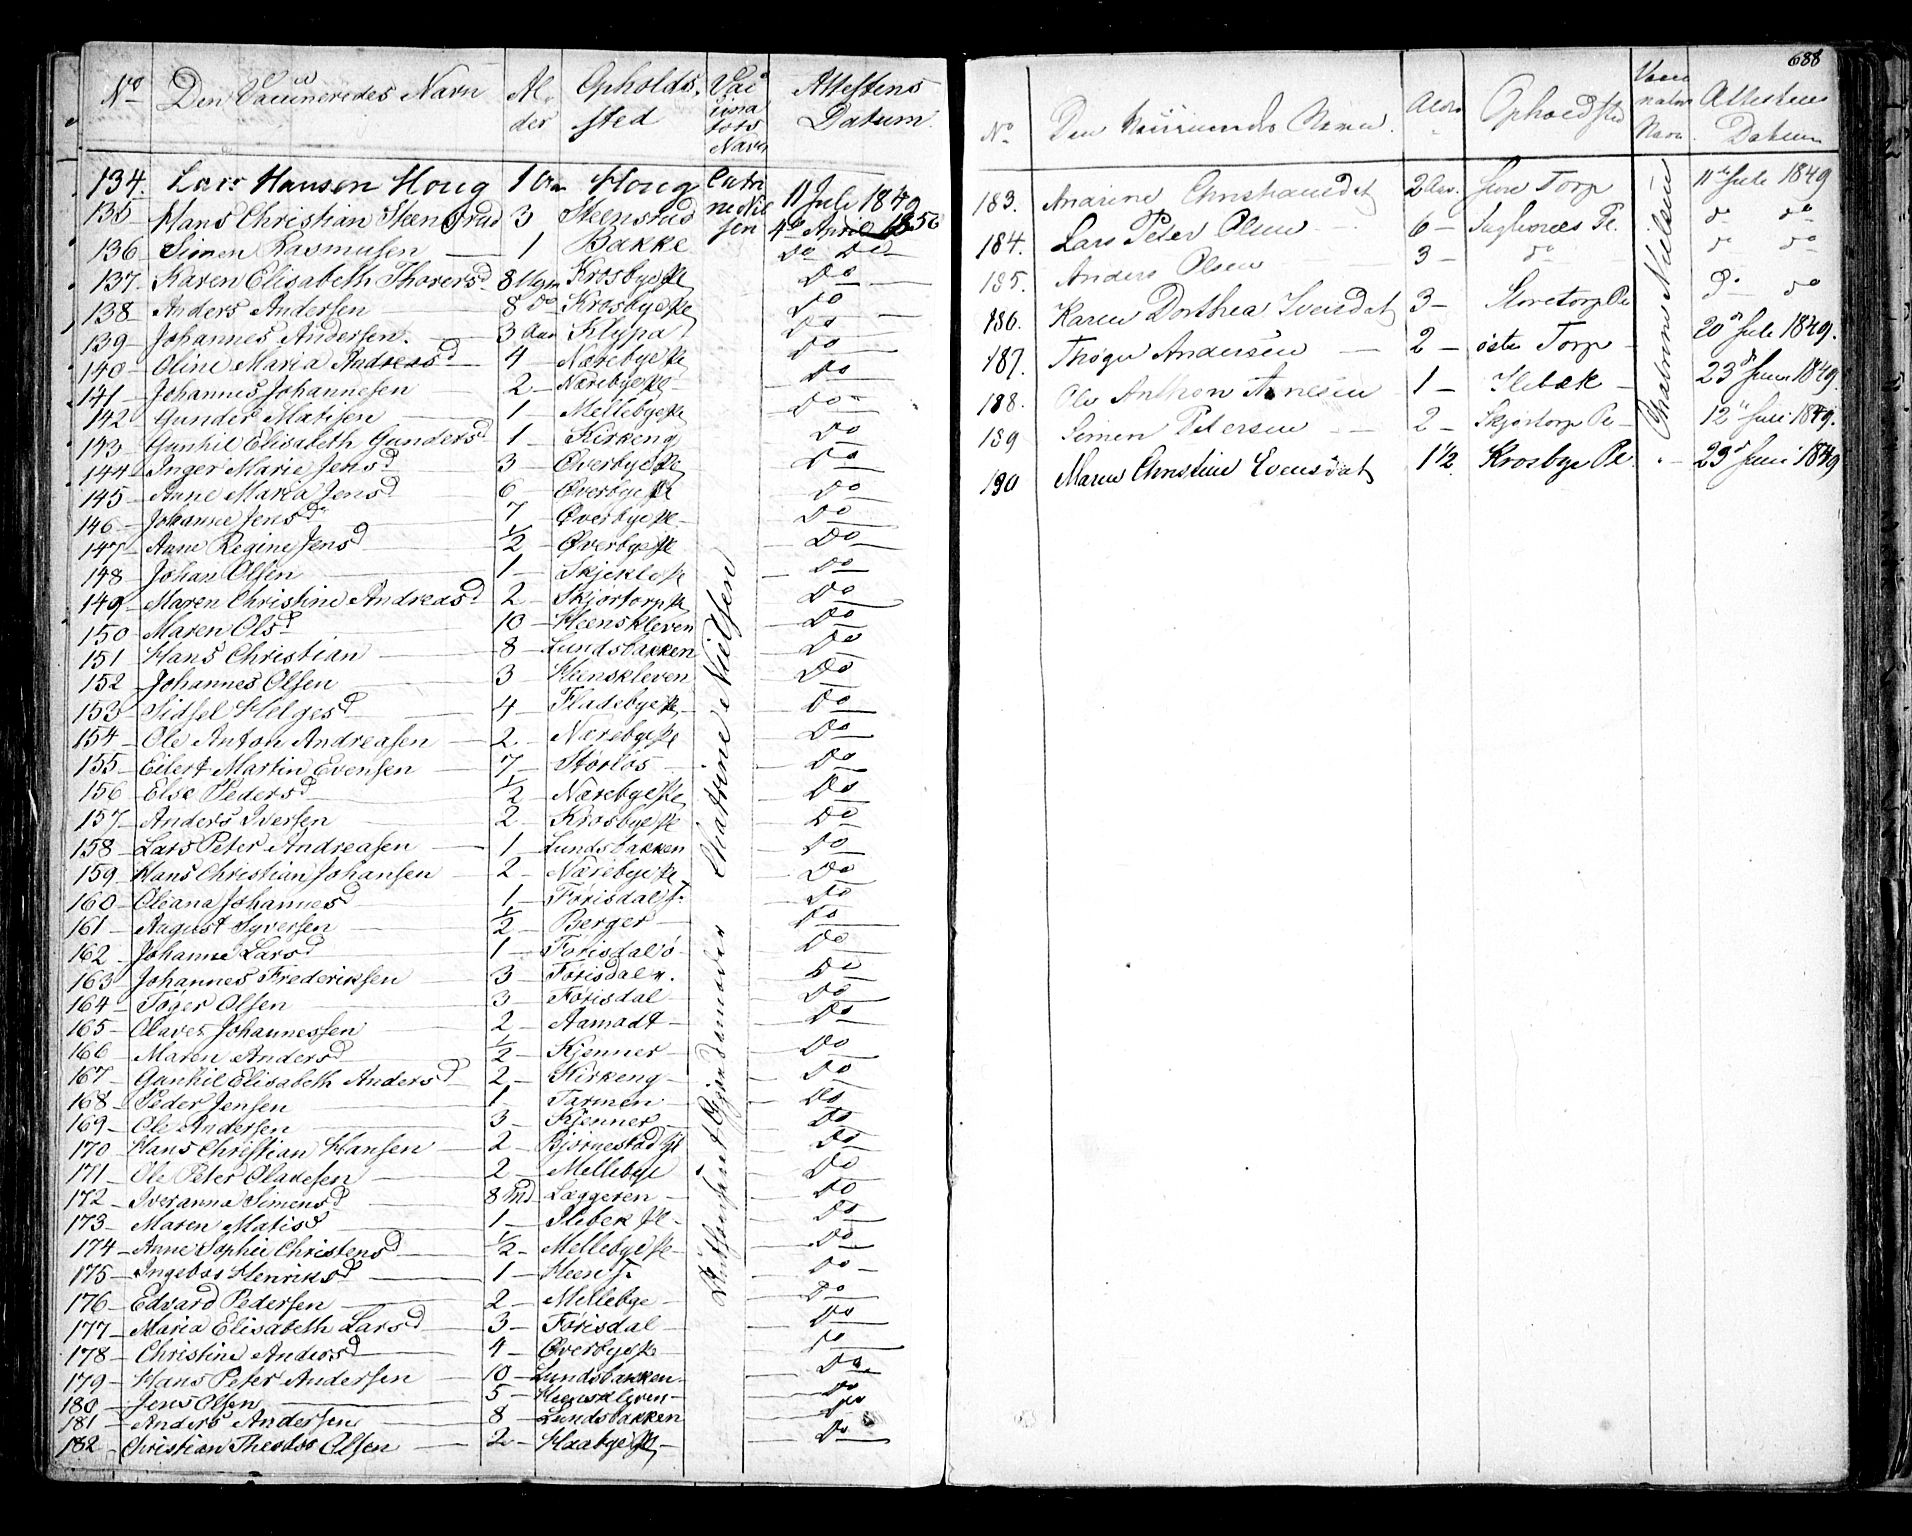 No Den Vaccineredes Navn Alder Opholdssted Vaccinators Navn Attestens Datum
134. Lars Hansen Houg 1 Aar Houg Catrine Nielsen 11 Juli 1849
135 Hans Christian Steensrud 3 Steensrud 4de April 1850
136 Simen Rasmusen 1 Bakke Do Do
137. Karen Elisabeth Thoresd 8 Krosbye Do
138 Anders Andersen 8 do Krosbye Do
139 Johannes Andersen. 3 Aar Klypa Do
140 Oline Maria Andreasd 4 Nærebye Do
141 Johannes Johannesen 2 Nærebye Do
142 Gunder Matisen 1 Mellebye Do
143 Gunhil Elisabeth Gundersd 1 Kirkeng Do
144 Inger Marie Jensd 3 Øverbye Do
145 Anne Maria Jensd 6 Øverbye Do
146 Johanne Jensd 7 Øverbye Do
147 Anne Regine Jensd 1/2 Øverbye Do
148 Johan Olsen 1 Skjekle Do
149 Maren Christine Andreasd 2 Skjørtorp Do
150 Maren Olsd 10 Heenskleven Do
151 Hans Christian 8 Lundsbakken Do
152 Johannes Olsen 3 Heenskleven Do
153 Sidsel Helgesd 4 Fladebye Do
154 Ole Anton Andreasen 2 Nærebye Do
155 Eilert Martin Evensen 7 Størløs Do
156 Else Pedersd 1/2 Nærebye Do
157 Anders Iversen 2 Krosbye Do
158 Lars Peter Andreasen 1 Lundsbakken Do
159 Hans Christian Johansen 2 Nærebye Do
160 Oleana Johannesd 1 Førisdal Do
161 August Syversen 1/2 Berger Do
162 Johanne Larsd 1 Førisdal ø Do
163 Johannes Frederiksen 3 Førisdal Do
164 Tøger Olsen 3 Førisdal Do
165 Olaves Johannessen 2 Aamodt Do
166 Maren Andersd 1/2 Kjenner Do
167 Gunhil Elisabeth Andersd 2 Kirkeng Do
168 Peder Jensen 1 Tarmen Do
169 Ole Andersen 3 Kjenner Do
170 Hans Christian Hansen 2 Bjørnestad Do
171 Ole Peter Olavesen 2 Mellebye Do
172 Iveranna Simensd 8 Md Læggeren Do
173 Maren Matisd 1 Ilebek Do
174 Anne Sophie Christensd 1/2 Mellebye Do
175 Ingebor Henriksd 1 Heen Do
176 Edvard Pedersen 2 Mellebye Do
177 Maria Elisabeth Larsd 3 Førisdal Do
178 Christine Andersd 4 Øverbye Do
179 Hans Peter Andersen 10 Lundsbakken Do
180 Jens Olsen 5 Heenskleven Do
181 Anders Andersen 8 Lundsbakken Do
182 Christian Theodor Olsen 2 Haabye Do
Chatrine Nielsen
688
No Den Navn. Alder Opholdsted Navn. Attestens Datum
183. Anarine Christiansdat 2 Aar. Torp 11te Juli 1849
184. Lars Peter Olsen 6 Do Do
185. Anders Olsen 3 Do Do Do
186. Karen Dorthea Iversdat 3 Storetorp Do Do
187. Thøger Andersen 2 østre Torp 20de Juli 1849.
188. Ole Anthon Arnesen 1 Ilebæk 23de Juni 1849.
189 Simen Petersen 2 Skjørtorp 12te Juli 1849.
190 Maren Christine Evensdat 1 1/2 Krosbye 23de Juni 1849
Chatrine Nielsen